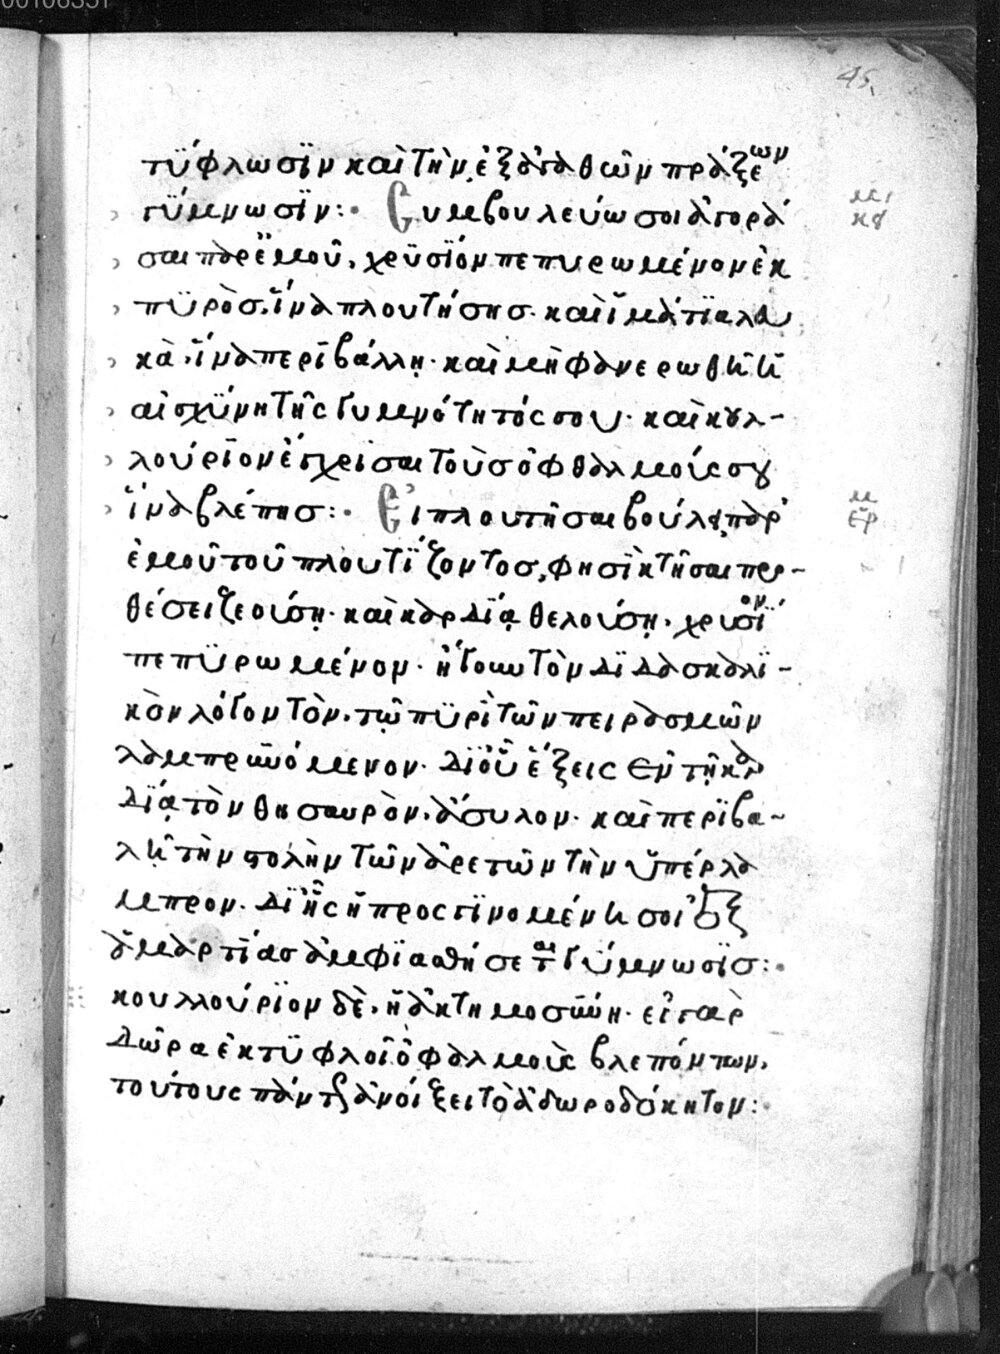 45
τϋφλωσϊν καὶ τὴν ἐξ ἀγαθῶν πράξεων
γϋμνωσϊν:· Συμβουλεύω σοι ἀγορά
σαι παρ ἐμοῦ, χρϋσϊόν πεπυρωμένον ἐκ
πϋρὸσ. ἵνα πλουτήσησ. καὶ ἱμάτϊα λευ
κὰ. ἵνα περϊβάλλῃ. καὶ μὴ φανερωθῆ ἡ
αἰσχϋνη τῆς γυμνότητός σου. καὶ κολ-
λούρϊον ἔγχρισαι τοὺσ ὀφθαλμούς σου
ἵνα βλέπησ:· Εἰ πλουτῆσαι βούλει, παρ
ἐμοῦ τοῦ πλουτϊζοντοσ, φησὶ κτῆσαι προ-
θέσει ζεούσῃ. καὶ καρδϊᾳ θελούσῃ. χρυσϊον
πεπϋρωμένον. ἤγουν τὸν δϊδασκαλϊ-
κὸν λόγον τὸν. τῷ πϋρὶ τῶν πειρασμῶν
λαμπρϋνόμενον. δϊ οὗ ἕξεις ἐν τῇ καρ
δϊᾳ τὸν θησαυρὸν. ἄσυλον. καὶ περϊβα-
λῆ τὴν στολὴν τῶν ἀρετῶν τὴν ὑπέρλα
μπρον. δϊ ἧς ἡ προσγϊνομένη σοι ἐξ
ἁμαρτϊασ ἀμφϊασθήσεται γύμνωσϊσ:·
κουλλούρϊον δὲ. ἡ ἀκτημοσϋνη. εἰ γὰρ
δῶρα ἐκτϋφλοῖ ὀφθαλμοὺς βλεπόντων.
τούτους πάντως ἀνοίξει τὸ ἀδωροδόκητον:·